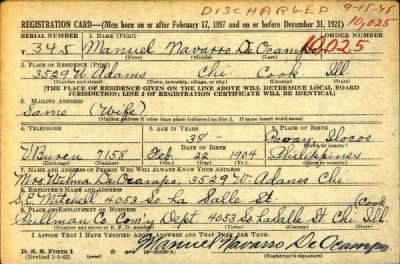 DISCHARGED 9-15-45
REGISTRATION CARD—(Men born on or after February 17, 1897 and on or before December 31, 1921) 10,025
SERIAL NUMBER 1. NAME (Print) ORDER NUMBER
T 345 Manuel Navarro De Ocampo 10,025
(First) (Middle) (Last)
2. PLACE OF RESIDENCE (Print)
3529 W. Adams Chi Cook Ill
(Number and street) (Town, township, village, or city) (County) (State)
[THE PLACE OF RESIDENCE GIVEN ON THE LINE ABOVE WILL DETERMINE LOCAL BOARD
JURISDICTION; LINE 2 OF REGISTRATION CERTIFICATE WILL BE IDENTICAL]
3. MAILING ADDRESS
Same (Wife)
[Mailing address if other than place indicated on line 2. If same insert word same]
4. TELEPHONE 5. AGE IN YEARS 6. PLACE OF BIRTH
38 Ilocos
DATE OF BIRTH
V Buren 7158 Feb 22 1904 Philippines
(Exchange) (Number) (Mo.) (Day) (Yr.) (State or country)
7. NAME AND ADDRESS OF PERSON WHO WILL ALWAYS KNOW YOUR ADDRESS
Mrs Wilma De Ocampo, 3529 W. Adams Chi.
8. EMPLOYER'S NAME AND ADDRESS
S.E. Mitchell 4053 So. La Salle St. (Cook
9. PLACE OF EMPLOYMENT OR BUSINESS
Pullman Co. Com'y Dept 4053 So. LaSalle St Chi. Ill.
(Number and street or R. F. D. number) (Town) (County) (State)
I AFFIRM THAT I HAVE VERIFIED ABOVE ANSWERS AND THAT THEY ARE TRUE.
D. S. S. Form 1
(Revised 1-1-42) Manuel Navarro De Ocampo